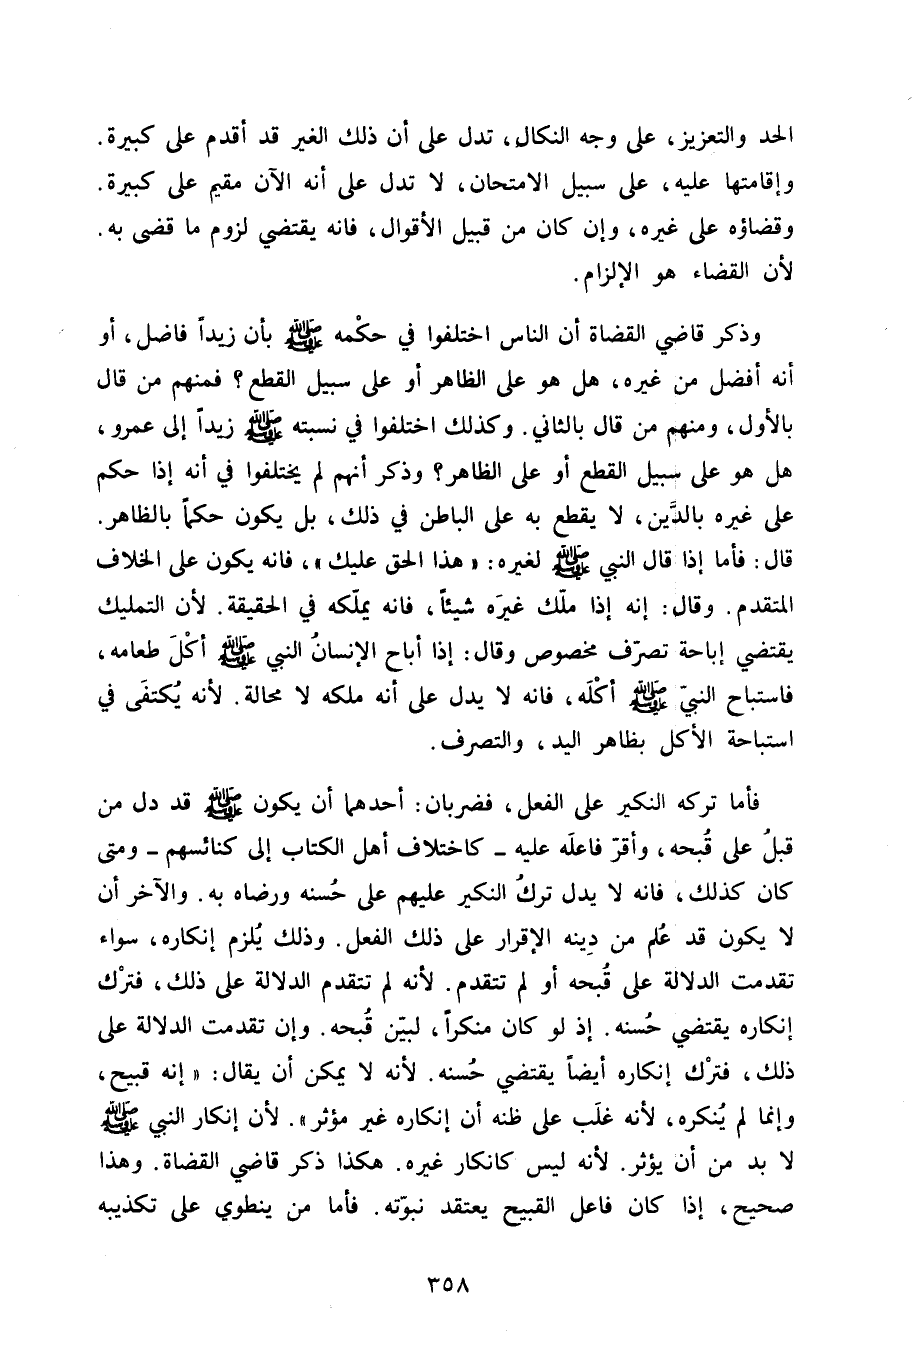 الحد والتعزيز، على وجه النكال، تدل على أن ذلك الغير قد أقدم على كبيرة.
وإقامتها عليه، على سبيل الامتحان، لا تدل على أنه الآن مقيم على كبيرة.
وقضاؤه على غيره، وإن كان من قبيل الأقوال، فانه يقتضي لزوم ما قضى به.
لأن القضاء هو الإلزام.
وذكر قاضي القضاة أن الناس اختلفوا في حكْمه ﷺ بأن زيداً فاضل، أو
أنه أفضل من غيره، هل هو على الظاهر أو على سبيل القطع؟ فمنهم من قال
بالأول، ومنهم من قال بالثاني. وكذلك اختلفوا في نسبته ﷺ زيداً إلى عمرو،
هل هو على سبيل القطع أو على الظاهر؟ وذكر أنهم لم يختلفوا في أنه إذا حكم
على غيره بالدَّين، لا يقطع به على الباطن في ذلك، بل يكون حكماً بالظاهر.
قال: فأما إذا قال النبي ﷺ لغيره: « هذا الحق عليك »، فانه يكون على الخلاف
المتقدم. وقال: إنه إذا ملّك غيرَه شيئاً، فانه يملّكه في الحقيقة. لأن التمليك
يقتضي إباحة تصرّف مخصوص وقال: إذا أباح الإنسانُ النبي ﷺ أكْلَ طعامه،
فاستباح النبيّ ﷺ أكْلَه، فانه لا يدل على أنه ملكه لا محالة. لأنه يُكتفَى في
استباحة الأكل بظاهر اليد، والتصرف.
فأما تركه النكير على الفعل، فضربان: أحدهما أن يكون ﷺ قد دل من
قبلُ على قُبحه، وأقرّ فاعلَه عليه ـ كاختلاف أهل الكتاب إلى كنائسهم ـ ومتى
كان كذلك، فانه لا يدل تركُ النكير عليهم على حُسنه ورضاه به. والآخر أن
لا يكون قد عُلم من دِينه الإقرار على ذلك الفعل. وذلك يُلزم إنكاره، سواء
تقدمت الدلالة على قُبحه أو لم تتقدم. لأنه لم تتقدم الدلالة على ذلك، فترْك
إنكاره يقتضي حُسنه. إذ لو كان منكراً، لبيّن قُبحه. وإن تقدمت الدلالة على
ذلك، فترْك إنكاره أيضاً يقتضي حُسنه. لأنه لا يمكن أن يقال: « إنه قبيح،
وإنما لم يُنكره، لأنه غلَب على ظنه أن إنكاره غير مؤثر ». لأن إنكار النبي ﷺ
لا بد من أن يؤثر. لأنه ليس كانكار غيره. هكذا ذكر قاضي القضاة. وهذا
صحيح، إذا كان فاعل القبيح يعتقد نبوّته. فأما من ينطوي على تكذيبه
٣٥٨